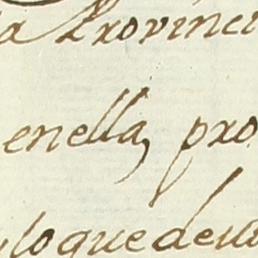 a Provinci
enella, pro
lo que de su